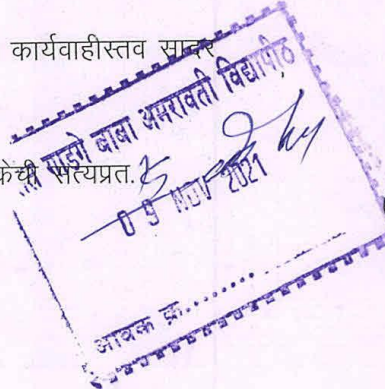 कार्यवाहीस्तव सादर
गाडगे बाबा अमरावती विद्यापीठ
सत्यप्रत.
09 NOV 2021
आवक क्र........